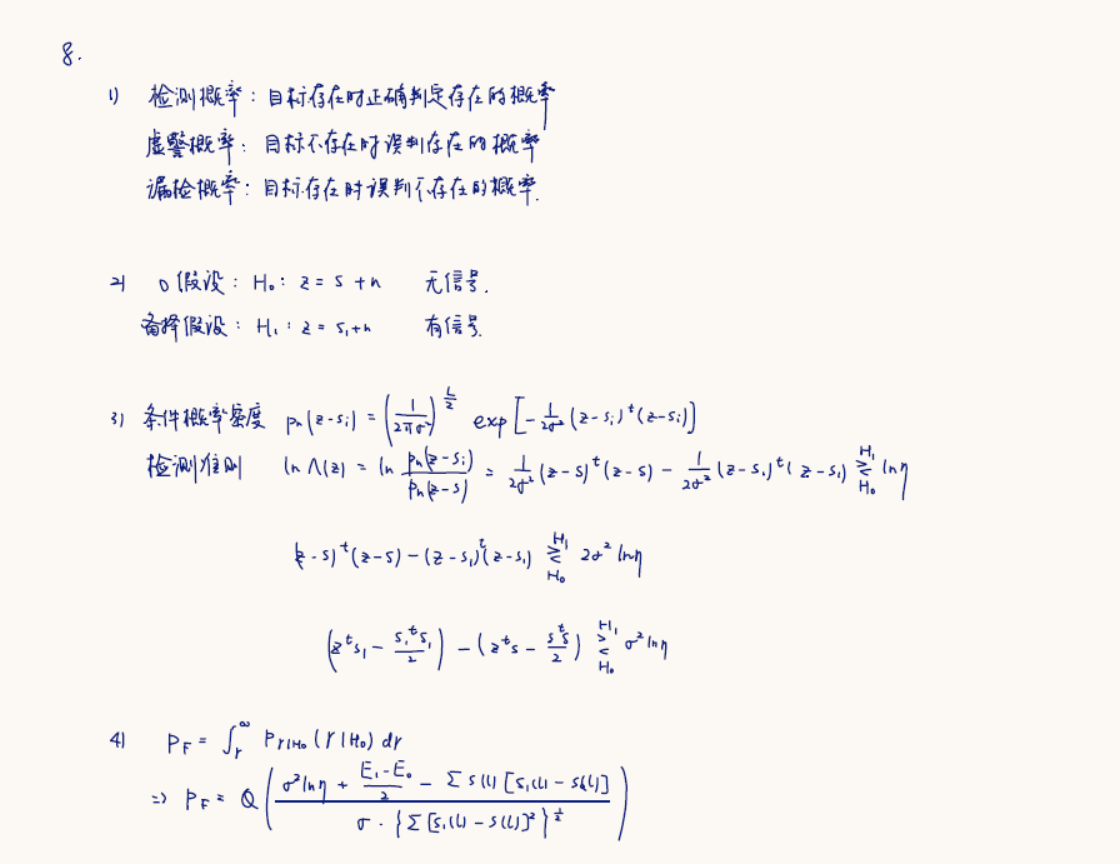 8.
1) 检测概率：目标存在时正确判定存在的概率
虚警概率：目标不存在时误判存在的概率
漏检概率：目标存在时误判不存在的概率.
2) 0假设：H₀：z = s + n 无信号.
备择假设：H₁：z = s₁+n 有信号.
3) 条件概率密度 pₙ(z-sᵢ) = (1/2πσ²)^(L/2) exp[-1/2σ² (z-sᵢ)ᵗ(z-sᵢ)]
检测准则 ln Λ(z) = ln pₙ(z-sᵢ)/pₙ(z-s) = 1/2σ² (z-s)ᵗ(z-s) - 1/2σ² (z-s₁)ᵗ(z-s₁) ≷ H₁ H₀ lnη
(z-s)ᵗ(z-s) - (z-s₁)ᵗ(z-s₁) ≷ H₁ H₀ 2σ² lnη
(zᵗs₁ - s₁ᵗs₁/2) - (zᵗs - sᵗs/2) ≷ H₁ H₀ σ² lnη
4) P_F = ∫_r^∞ P_r|H₀ (r|H₀) dr
=> P_F = Q( (σ²lnη + (E₁-E₀)/2 - Σ s(l) [s₁(l) - s(l)]) / (σ · {Σ [s₁(l) - s(l)]²}^(1/2)) )